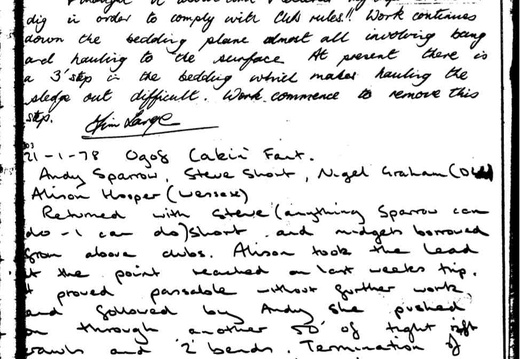 dig in order to comply with Club rules!! Work continues
down the bedding plane almost all involving bang
and hauling to the surface. At present there is
a 3' step in the bedding which makes hauling the
sledge out difficult. Work commence to remove this
step. Jim Large
21-1-78 Ogof Cabin Fant.
Andy Sparrow, Steve Short, Nigel Graham
Alison Hooper (Wessex)
Returned with Steve (anything Sparrow can
do - I can do) Short and midgets borrowed
from above clubs. Alison took the lead
at the point reached on last weeks trip.
It proved passable without further work
and followed by Andy she pushed
on through another 50' of tight
crawls and 2 bends. Termination of